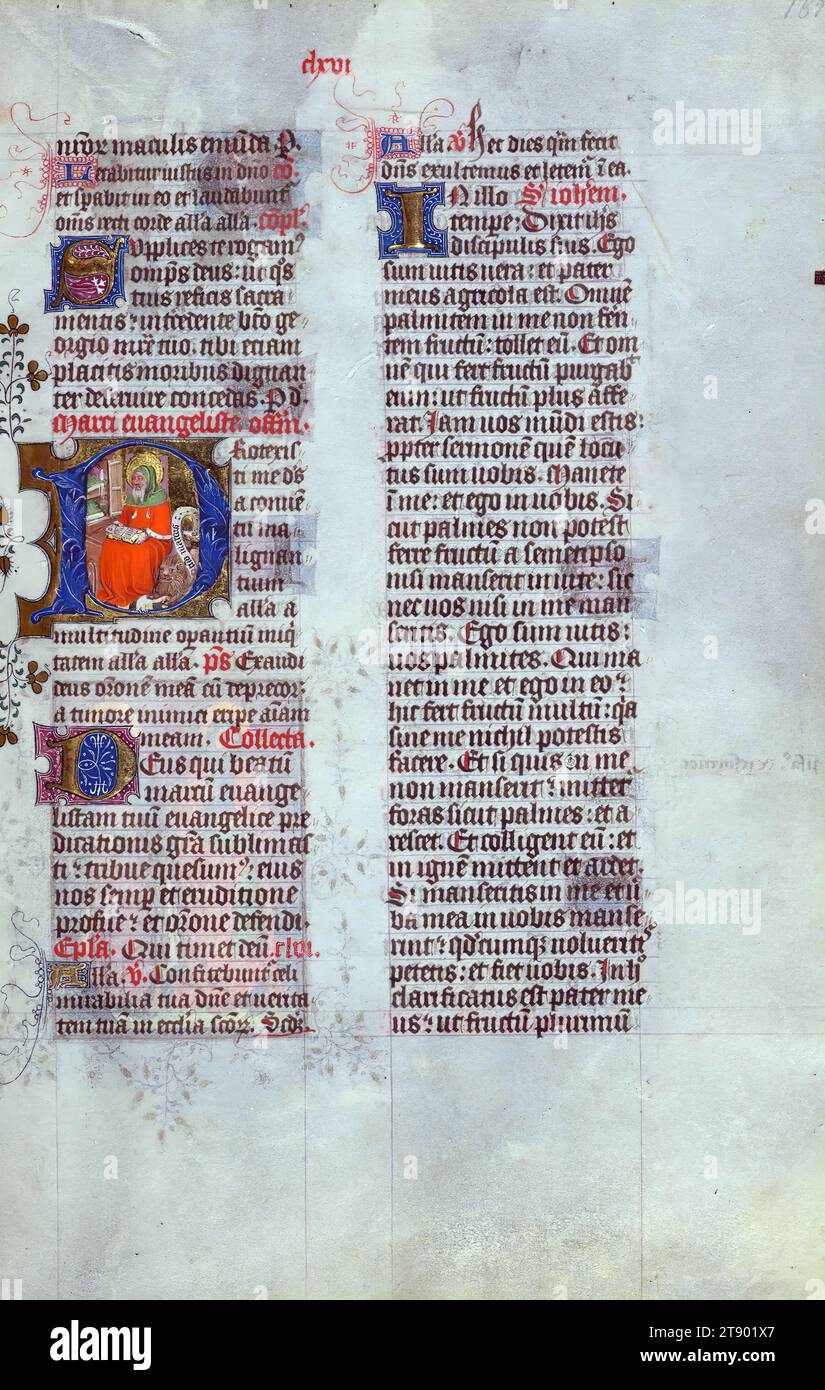 clxvi
nr̄or maculis emūda P.
Letabitur iustus in dno co.
et sp̄abit in eo et laudabunt̾
om̄s recti corde alla alla. cōpl̾.
Supplices te rogam̾
om̄ps deus: ut q̄s
tuis reficis sacra
mentis: intercedente bt̄o ge
orgio mr̄e tuo. tibi etiam
placitis moribus dignan
ter deseruire concedas. P d
Marci euangeliste. offm̄.
Protexis
ti me ds̄
a conuē
tu ma
lignan
tium
alla a
multitudine opantiū iniq̾
tatem alla alla. ps̄ Exaudi
deus or̄onē meā cū deprecor:
a timore inimici eripe aīam
meam. Collecta.
Deus qui beatū
marcū euange
listam tuū euangelice pre
dicationis gr̄a sublimas
ti: tribue quesum̾: eius
nos semp et eruditione
profice: et or̄one defendi.
Epl̄a. Qui timet deū. clvi.
Alla. v̄. Confitebunt̾ celi
mirabilia tua dn̄e et uerita
tem tuā in ecclia scōr̾. Scd̄z
Alla v̄ Hec dies quā fecit
dn̄s exultemus et letem̾ ī ea.
IN illo S iohem̄.
tempe: Dixit ih̄s
discipulis suis. Ego
sum uitis uera: et pater
meus agricola est. Omnē
palmitem in me non feren
tem fructū: tollet eū. Et om
nē qui fert fructū purgab̾
eum: ut fructū plus affe
rat. Iam uos mūdi estis:
ppter sermonem quē locu
tus sum uobis. Manete
ī me: et ego in uobis. Si
cut palmes non potest
ferre fructū a semetipso
nisi manserit in uite: sic
nec uos nisi in me man
seritis. Ego sum uitis:
uos palmites. Qui ma
net in me et ego in eo:
hic fert fructū multū: q̄a
sine me nichil potestis
facere. Et si quis in me
non manserit: mittet̾
foras sicut palmes: et a
rescet. Et colligent eū: et
in ignē mittent et ardet.
Si manseritis in me et u̾
ba mea in uobis manse
rint: qd̾cumq; uoluerit̾
petetis: et fiet uobis. In h̾
clarificatus est pater me
us: ut fructū plurimū
alamy
Image ID: 2T901X7
www.alamy.com